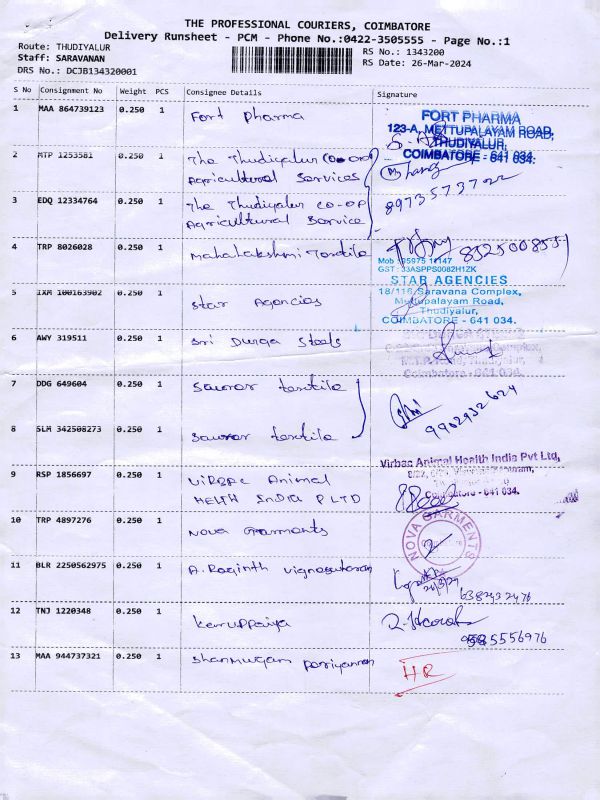 THE PROFESSIONAL COURIERS, COIMBATORE
Delivery Runsheet - PCM - Phone No.:0422-3505555 - Page No.:1
Route: THUDIYALUR
Staff: SARAVANAN
DRS No.: DCJB134320001
RS No.: 1343200
RS Date: 26-Mar-2024
S No Consignment No Weight PCS Consignee Details Signature
1 MAA 864739123 0.250 1 Fort Pharma
FORT PHARMA
123-A, METTUPALAYAM ROAD,
THUDIYALUR,
COIMBATORE - 641 034.
2 MTP 1253581 0.250 1 The Thudiyalur Co-op
Agricultural Services
3 EDQ 12334764 0.250 1 The Thudiyalur CO-OP
Agricultural Service
8973573722
4 TRP 8026028 0.250 1 Mahalakshmi Textile
Mob : 95975 12147
GST : 33ASPPS0082H1ZK
5 IXM 100163902 0.250 1 Star Agencies
STAR AGENCIES
18/116, Saravana Complex,
Mettupalayam Road,
Thudiyalur,
COIMBATORE - 641 034.
6 AWY 319511 0.250 1 Sri Durga Steels
Coimbatore - 641 034.
7 DDG 649604 0.250 1 Saurav textile
9902932624
8 SLM 342508273 0.250 1 Saurav textile
9 RSP 1856697 0.250 1 Virbac Animal
HELTH INDIA P LTD
Virbac Animal Health India Pvt Ltd,
Coimbatore - 641 034.
10 TRP 4897276 0.250 1 Nova Garments
NOVA GARMENTS
11 BLR 2250562975 0.250 1 A. Raginth Vignesutaran
26/3/24
6382932476
12 TNJ 1220348 0.250 1 Karuppaiya
5556976
13 MAA 944737321 0.250 1 Shanmugam Periyannan
HR